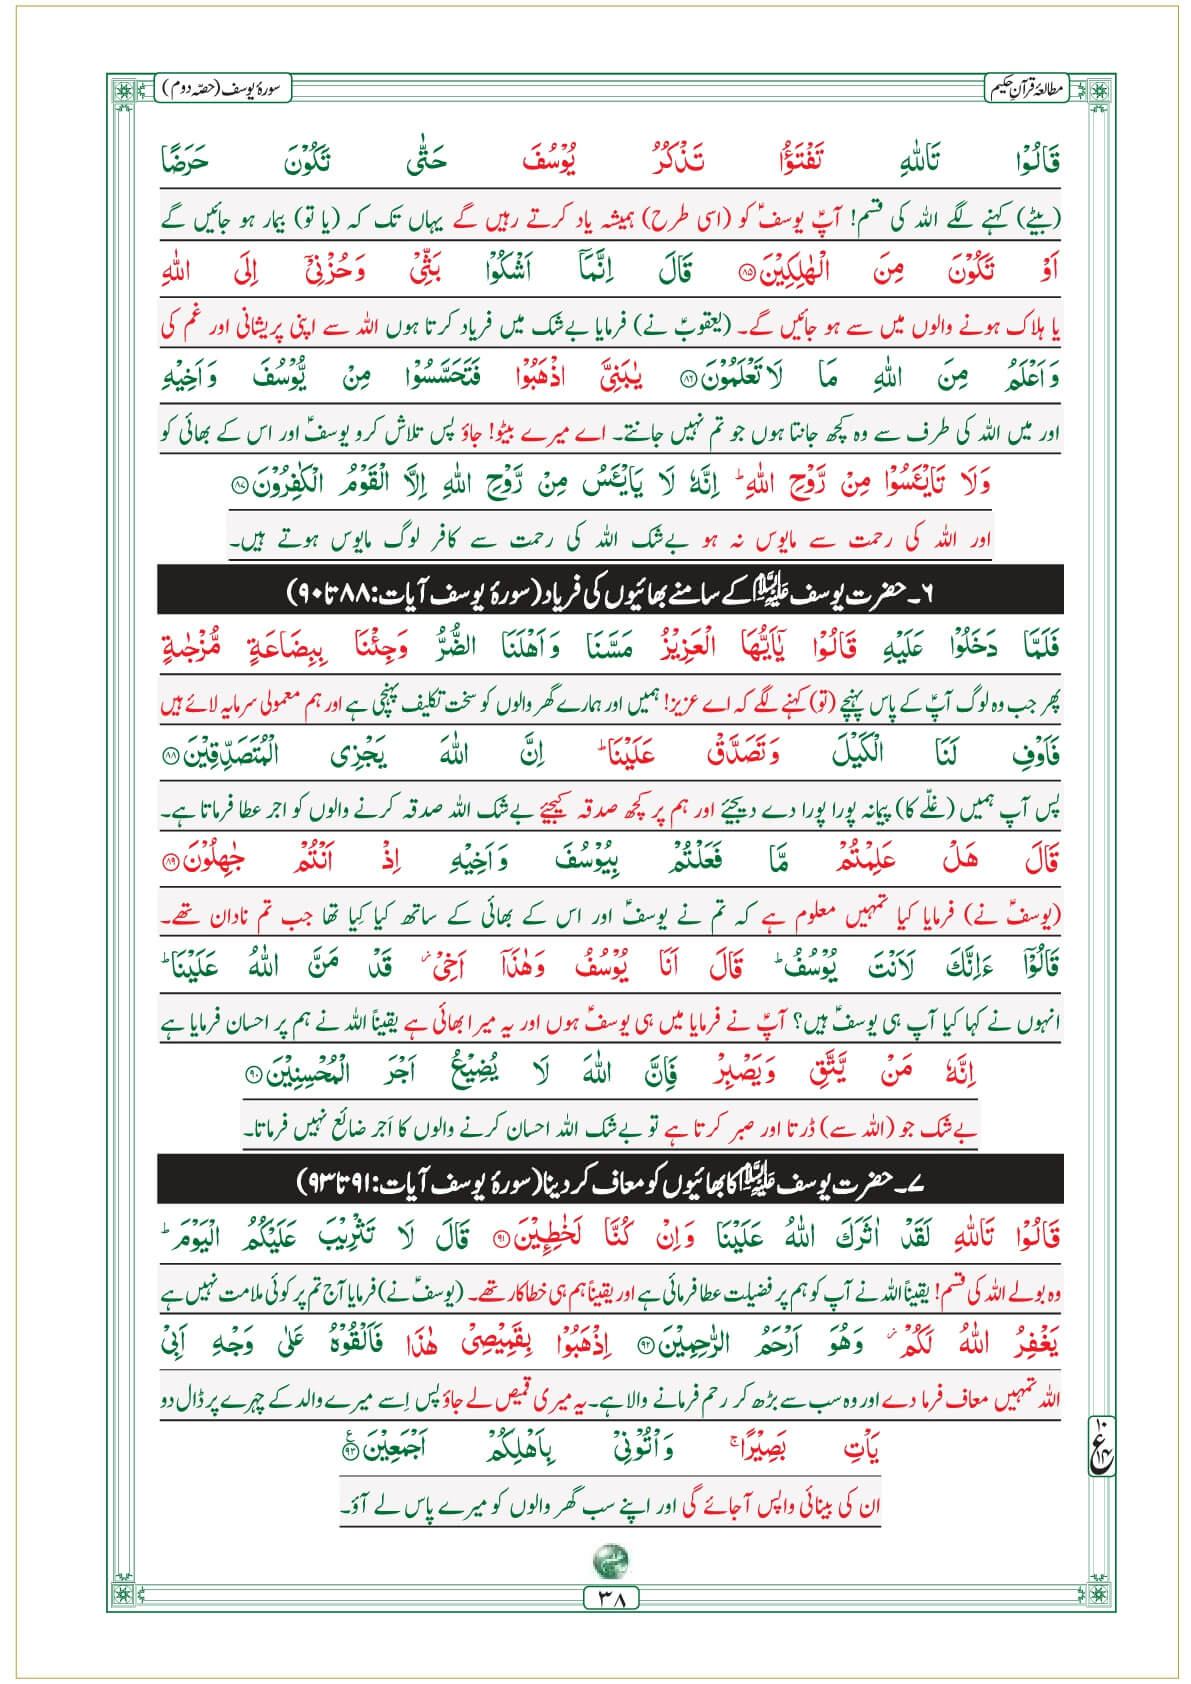 مطالعۂ قرآنِ حکیم
سورۂ یوسف (حصّہ دوم)
قَالُوْا تَاللّٰهِ تَفْتَؤُا تَذْكُرُ يُوْسُفَ حَتّٰى تَكُوْنَ حَرَضًا
(بیٹے) کہنے لگے اللہ کی قسم! آپؑ یوسفؑ کو (اسی طرح) ہمیشہ یاد کرتے رہیں گے یہاں تک کہ (یا تو) بیمار ہو جائیں گے
اَوْ تَكُوْنَ مِنَ الْهٰلِكِيْنَ۝۸۵ قَالَ اِنَّمَاۤ اَشْكُوْا بَثِّيْ وَحُزْنِيْۤ اِلَى اللّٰهِ
یا ہلاک ہونے والوں میں سے ہو جائیں گے۔ (یعقوبؑ نے) فرمایا بےشک میں فریاد کرتا ہوں اللہ سے اپنی پریشانی اور غم کی
وَاَعْلَمُ مِنَ اللّٰهِ مَا لَا تَعْلَمُوْنَ۝۸۶ يٰبَنِيَّ اذْهَبُوْا فَتَحَسَّسُوْا مِنْ يُّوْسُفَ وَاَخِيْهِ
اور میں اللہ کی طرف سے وہ کچھ جانتا ہوں جو تم نہیں جانتے۔ اے میرے بیٹو! جاؤ پس تلاش کرو یوسفؑ اور اس کے بھائی کو
وَلَا تَايْـَٔسُوْا مِنْ رَّوْحِ اللّٰهِ ؕ اِنَّهٗ لَا يَايْـَٔسُ مِنْ رَّوْحِ اللّٰهِ اِلَّا الْقَوْمُ الْكٰفِرُوْنَ۝۸۷
اور اللہ کی رحمت سے مایوس نہ ہو بےشک اللہ کی رحمت سے کافر لوگ مایوس ہوتے ہیں۔
۶۔ حضرت یوسف علیہ السلام کے سامنے بھائیوں کی فریاد (سورۂ یوسف آیات: ۸۸ تا ۹۰)
فَلَمَّا دَخَلُوْا عَلَيْهِ قَالُوْا يٰۤاَيُّهَا الْعَزِيْزُ مَسَّنَا وَاَهْلَنَا الضُّرُّ وَجِئْنَا بِبِضَاعَةٍ مُّزْجٰىةٍ
پھر جب وہ لوگ آپؑ کے پاس پہنچے (تو) کہنے لگے کہ اے عزیز! ہمیں اور ہمارے گھر والوں کو سخت تکلیف پہنچی ہے اور ہم معمولی سرمایہ لائے ہیں
فَاَوْفِ لَنَا الْكَيْلَ وَتَصَدَّقْ عَلَيْنَا ؕ اِنَّ اللّٰهَ يَجْزِى الْمُتَصَدِّقِيْنَ۝۸۸
پس آپ ہمیں (غلّے کا) پیمانہ پورا پورا دے دیجئے اور ہم پر کچھ صدقہ کیجیئے بےشک اللہ صدقہ کرنے والوں کو اجر عطا فرماتا ہے۔
قَالَ هَلْ عَلِمْتُمْ مَّا فَعَلْتُمْ بِيُوْسُفَ وَاَخِيْهِ اِذْ اَنْتُمْ جٰهِلُوْنَ۝۸۹
(یوسفؑ نے) فرمایا کیا تمہیں معلوم ہے کہ تم نے یوسفؑ اور اس کے بھائی کے ساتھ کیا کِیا تھا جب تم نادان تھے۔
قَالُوْۤا ءَاِنَّكَ لَاَنْتَ يُوْسُفُ ؕ قَالَ اَنَا يُوْسُفُ وَهٰذَاۤ اَخِيْ ؗ قَدْ مَنَّ اللّٰهُ عَلَيْنَا ؕ
انہوں نے کہا کیا آپ ہی یوسفؑ ہیں؟ آپؑ نے فرمایا میں ہی یوسفؑ ہوں اور یہ میرا بھائی ہے یقیناً اللہ نے ہم پر احسان فرمایا ہے
اِنَّهٗ مَنْ يَّتَّقِ وَيَصْبِرْ فَاِنَّ اللّٰهَ لَا يُضِيْعُ اَجْرَ الْمُحْسِنِيْنَ۝۹۰
بےشک جو (اللہ سے) ڈرتا اور صبر کرتا ہے تو بےشک اللہ احسان کرنے والوں کا اَجر ضائع نہیں فرماتا۔
۷۔ حضرت یوسف علیہ السلام کا بھائیوں کو معاف کر دینا (سورۂ یوسف آیات: ۹۱ تا ۹۳)
قَالُوْا تَاللّٰهِ لَقَدْ اٰثَرَكَ اللّٰهُ عَلَيْنَا وَاِنْ كُنَّا لَخٰطِـِٕيْنَ۝۹۱ قَالَ لَا تَثْرِيْبَ عَلَيْكُمُ الْيَوْمَ ؕ
وہ بولے اللہ کی قسم! یقیناً اللہ نے آپ کو ہم پر فضیلت عطا فرمائی ہے اور یقیناً ہم ہی خطا کار تھے۔ (یوسفؑ نے) فرمایا آج تم پر کوئی ملامت نہیں ہے
يَغْفِرُ اللّٰهُ لَكُمْ ؗ وَهُوَ اَرْحَمُ الرّٰحِمِيْنَ۝۹۲ اِذْهَبُوْا بِقَمِيْصِيْ هٰذَا فَاَلْقُوْهُ عَلٰى وَجْهِ اَبِيْ
اللہ تمہیں معاف فرما دے اور وہ سب سے بڑھ کر رحم فرمانے والا ہے۔ یہ میری قمیص لے جاؤ پس اِسے میرے والد کے چہرے پر ڈال دو
يَاْتِ بَصِيْرًا ۚ وَاْتُوْنِيْ بِاَهْلِكُمْ اَجْمَعِيْنَ۝۹۳ ع
ان کی بینائی واپس آجائے گی اور اپنے سب گھر والوں کو میرے پاس لے آؤ۔
۱۰ ع ۱۴
۳۸